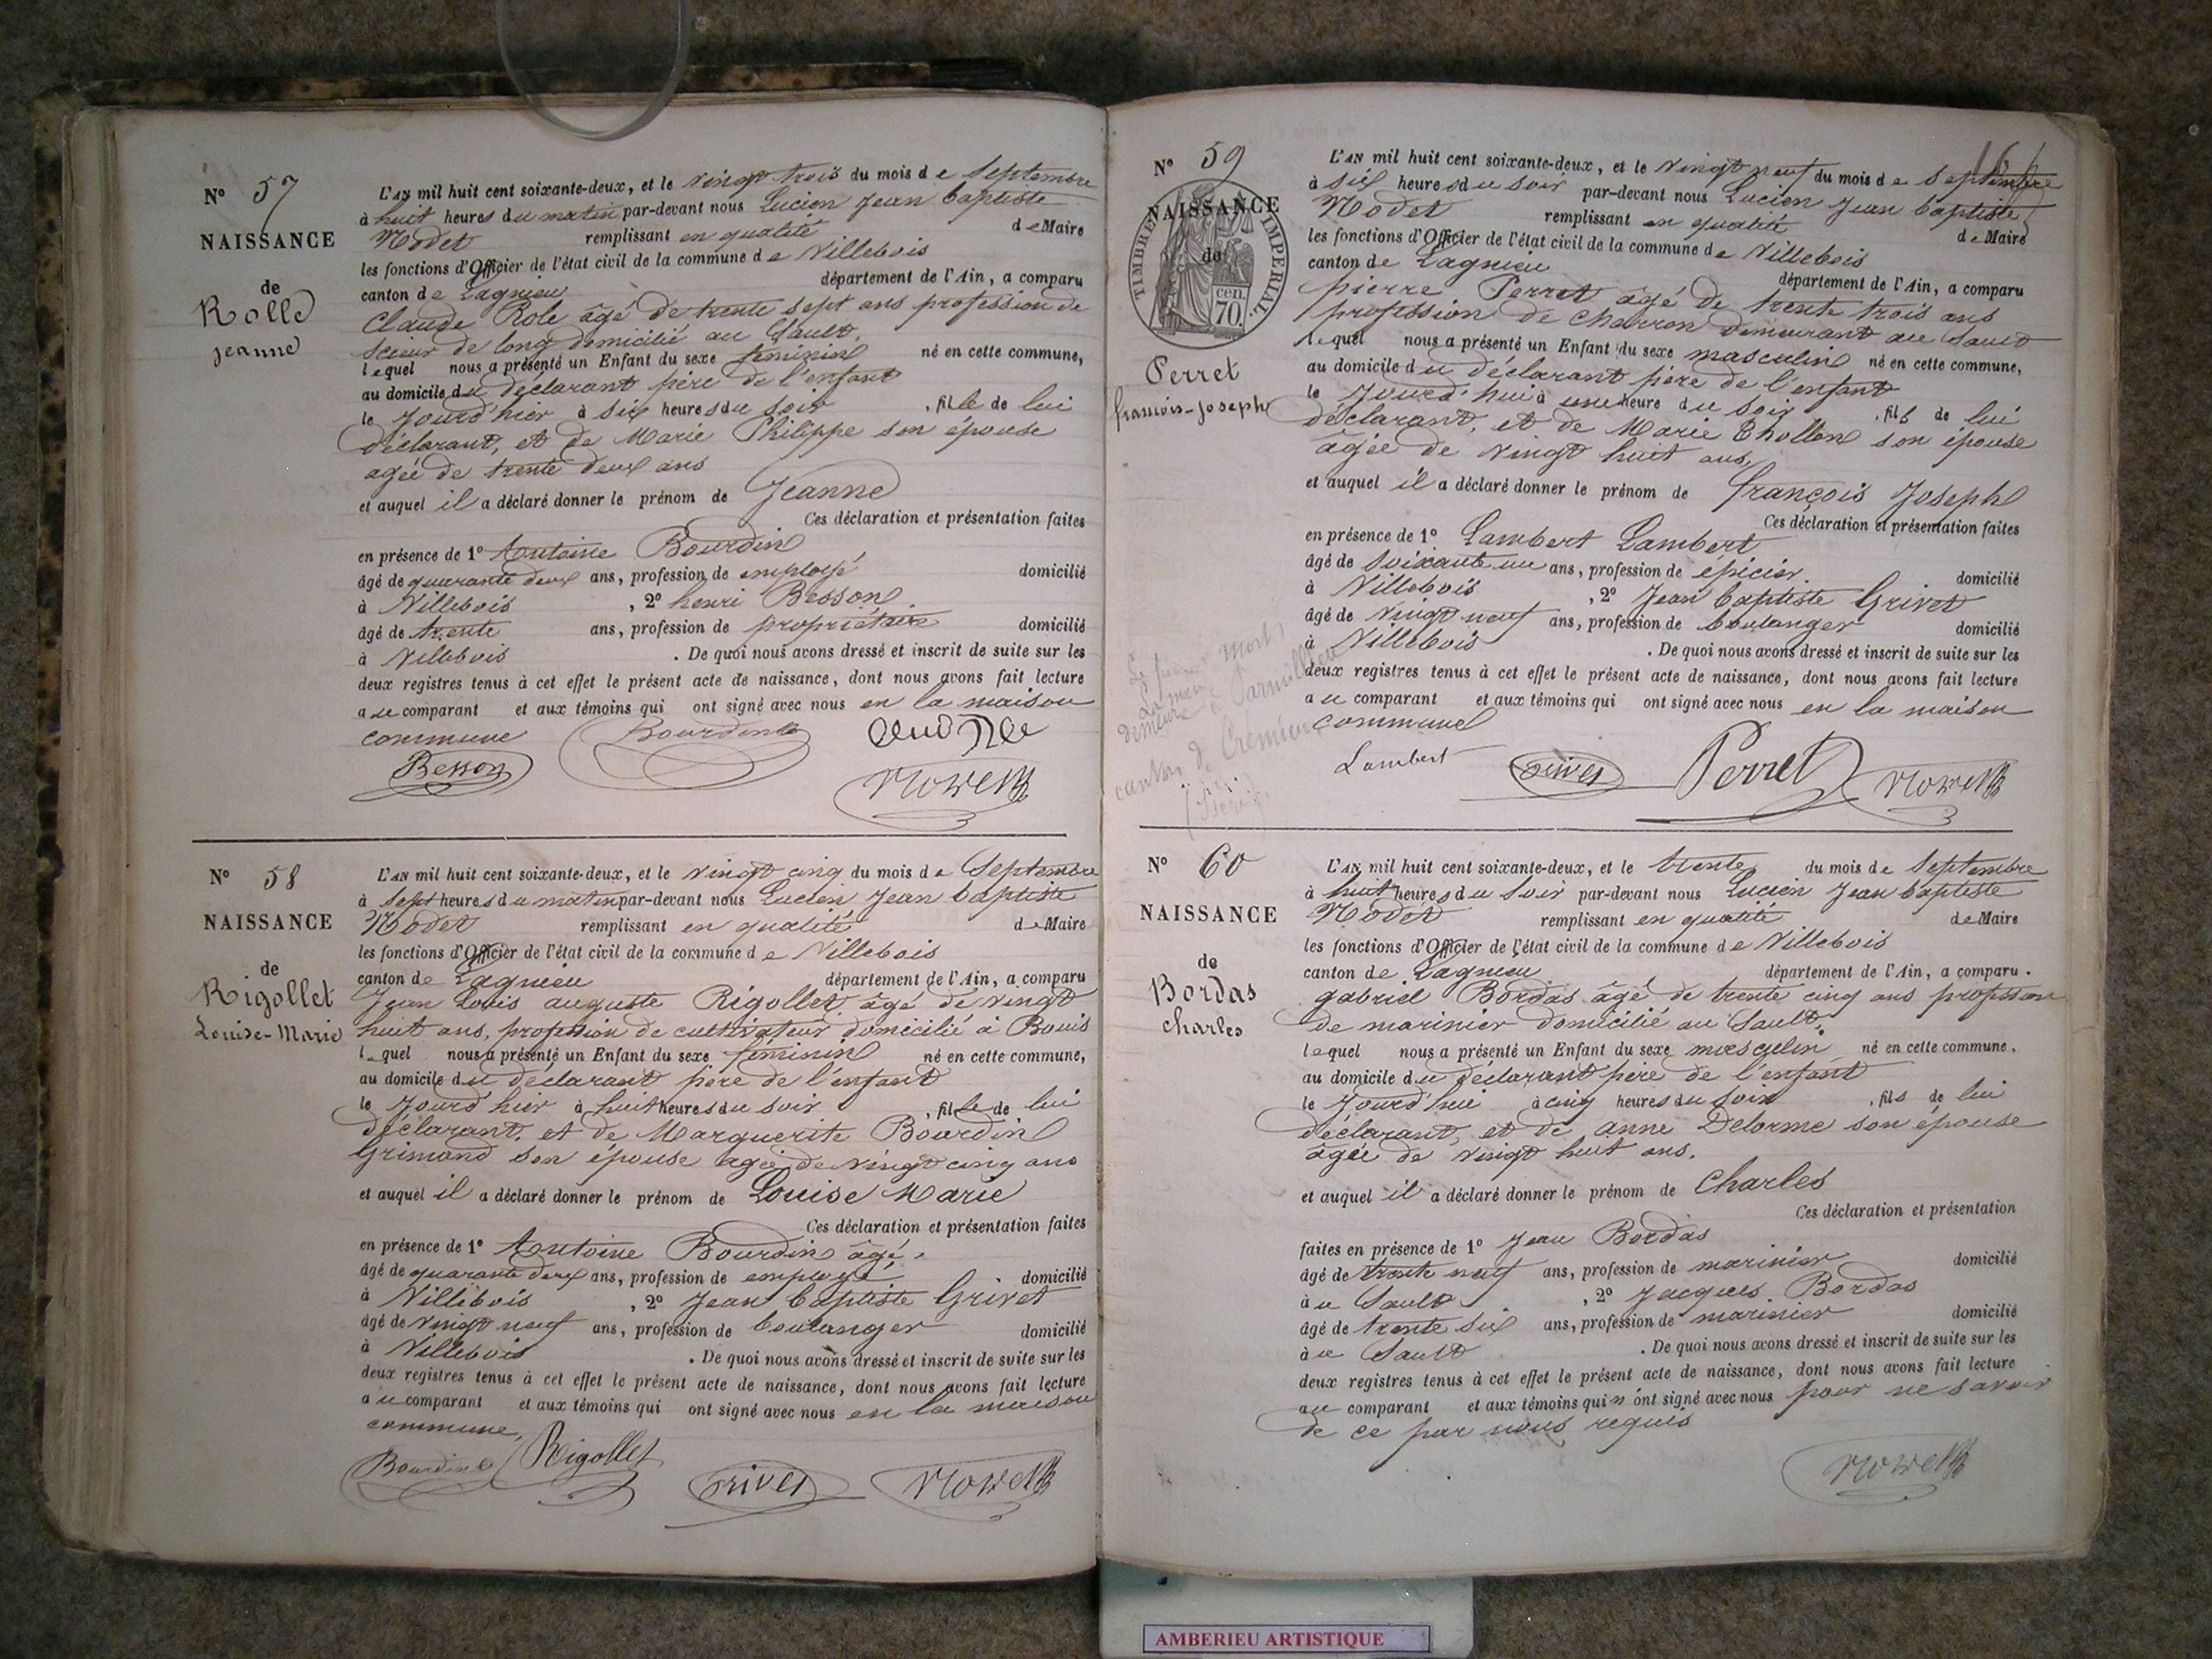 N° 57
NAISSANCE
de
Rolle
jeanne
L'AN mil huit cent soixante-deux, et le vingt trois du mois de Septembre
à huit heures du matin par-devant nous Lucien Jean baptiste
Nodet remplissant en qualité de Maire
les fonctions d'Officier de l'état civil de la commune de Villebois
canton de Lagnieu département de l'Ain, a comparu
Claude Role âgé de trente sept ans profession de
scieur de long domicilié au Sault,
lequel nous a présenté un Enfant du sexe féminin né en cette commune,
au domicile du déclarant père de l'enfant
le jourd'hier à six heures du soir , fille de lui
déclarant, et de Marie Philippe son épouse
agée de trente deux ans
et auquel il a déclaré donner le prénom de Jeanne
Ces déclaration et présentation faites
en présence de 1° Antoine Bourdin
âgé de quarante deux ans, profession de employé domicilié
à Villebois , 2° henri Besson
âgé de trente ans, profession de propriétaire domicilié
à Villebois . De quoi nous avons dressé et inscrit de suite sur les
deux registres tenus à cet effet le présent acte de naissance, dont nous avons fait lecture
au comparant et aux témoins qui ont signé avec nous en la maison
commune
Bourdin
Besson
N° 58
NAISSANCE
de
Rigollet
Louise-Marie
L'AN mil huit cent soixante-deux, et le vingt cinq du mois de Septembre
à sept heures du matin par-devant nous Lucien Jean baptiste
Nodet remplissant en qualité de Maire
les fonctions d'Officier de l'état civil de la commune de Villebois
canton de Lagnieu département de l'Ain, a comparu
Jean Louis auguste Rigollet âgé de vingt
huit ans, profession de cultivateur domicilié à Bouis
lequel nous a présenté un Enfant du sexe féminin né en cette commune,
au domicile du déclarant père de l'enfant
le jourd'hier à huit heures du soir , fille de lui
déclarant, et de Marguerite Bourdin
Grimond son épouse agée de vingt cinq ans
et auquel il a déclaré donner le prénom de Louise Marie
Ces déclaration et présentation faites
en présence de 1° Antoine Bourdin âgé
âgé de quarante deux ans, profession de employé domicilié
à Villebois , 2° Jean baptiste Grivet
âgé de vingt neuf ans, profession de boulanger domicilié
à Villebois . De quoi nous avons dressé et inscrit de suite sur les
deux registres tenus à cet effet le présent acte de naissance, dont nous avons fait lecture
au comparant et aux témoins qui ont signé avec nous en la maison
commune,
Bourdin Rigollet
N° 59
NAISSANCE
de
TIMBRE IMPERIAL
70 cen.
Perret
francois-joseph
L'AN mil huit cent soixante-deux, et le vingt neuf du mois de septembre
à six heures du soir par-devant nous Lucien Jean baptiste
Nodet remplissant en qualité de Maire
les fonctions d'Officier de l'état civil de la commune de Villebois
canton de Lagnieu département de l'Ain, a comparu
pierre Perret âgé de trente trois ans
profession de charron demeurant au Sault
lequel nous a présenté un Enfant du sexe masculin né en cette commune,
au domicile du déclarant père de l'enfant
le jourd'hui à une heure du soir , fils de lui
déclarant, et de Marie Thollon son épouse
âgée de vingt huit ans,
et auquel il a déclaré donner le prénom de françois Joseph
Ces déclaration et présentation faites
en présence de 1° Lambert Lambert
âgé de soixante un ans, profession de épicier. domicilié
à Villebois , 2° Jean baptiste Grivet
âgé de vingt neuf ans, profession de boulanger domicilié
à Villebois . De quoi nous avons dressé et inscrit de suite sur les
deux registres tenus à cet effet le présent acte de naissance, dont nous avons fait lecture
au comparant et aux témoins qui ont signé avec nous en la maison
commune
demeure à Parmillieu
canton de Crémieu
Lambert Perret
N° 60
NAISSANCE
de
Bordas
charles
L'AN mil huit cent soixante-deux, et le trente du mois de septembre
à huit heures du soir par-devant nous Lucien Jean baptiste
Nodet remplissant en qualité de Maire
les fonctions d'Officier de l'état civil de la commune de Villebois
canton de Lagnieu département de l'Ain, a comparu.
gabriel Bordas âgé de trente cinq ans profession
de marinier domicilié au Sault,
lequel nous a présenté un Enfant du sexe masculin né en cette commune,
au domicile du déclarant père de l'enfant
le jourd'hui à cinq heures du soir , fils de lui
déclarant, et de anne Delorme son épouse
âgée de vingt huit ans.
et auquel il a déclaré donner le prénom de Charles
Ces déclaration et présentation
faites en présence de 1° Jean Bordas
âgé de trente neuf ans, profession de marinier domicilié
au Sault , 2° Jacques Bordas
âgé de trente six ans, profession de marinier domicilié
au Sault . De quoi nous avons dressé et inscrit de suite sur les
deux registres tenus à cet effet le présent acte de naissance, dont nous avons fait lecture
au comparant et aux témoins qui n'ont signé avec nous pour ne savoir
de ce par nous requis
AMBERIEU ARTISTIQUE